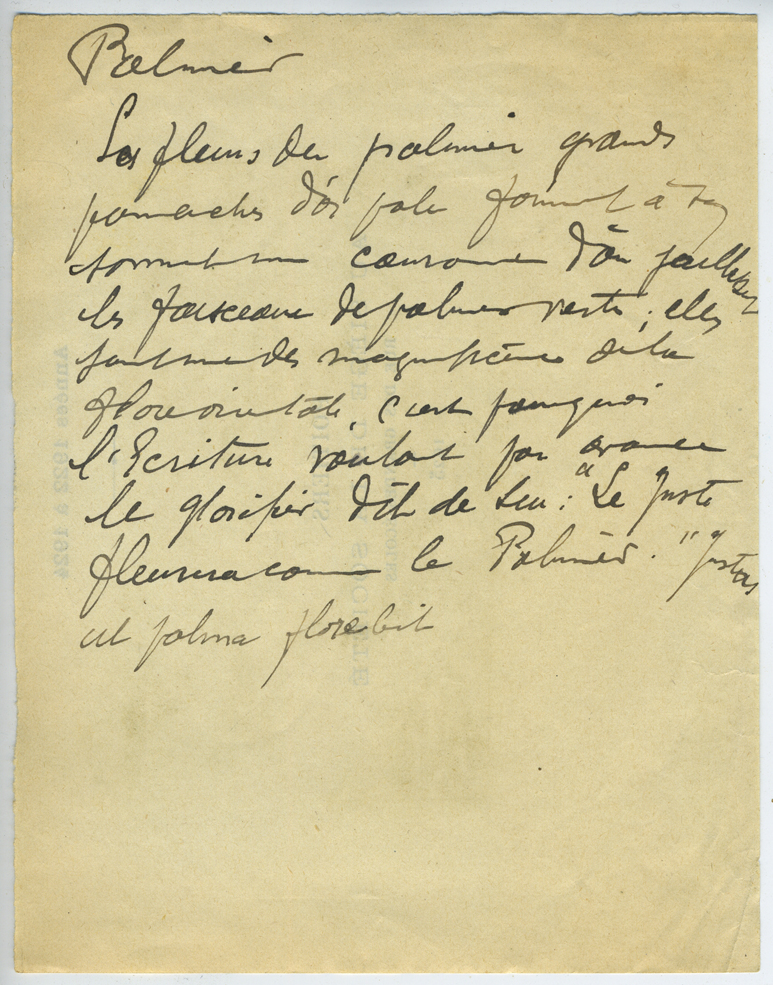 Palmier
Les fleurs du palmier grands
panaches d'or pale forment à son
sommet une couronne d'où jaillissent
les faisceaux de palmes verts ; elles
sont une des magnificences de la
flore orientale, c'est pourquoi
l'Ecriture voulant par avance
le glorifier dit de lui : "Le Juste
fleurira comme le Palmier. "Justus
ut palma florebit
Année 1922 à 1924